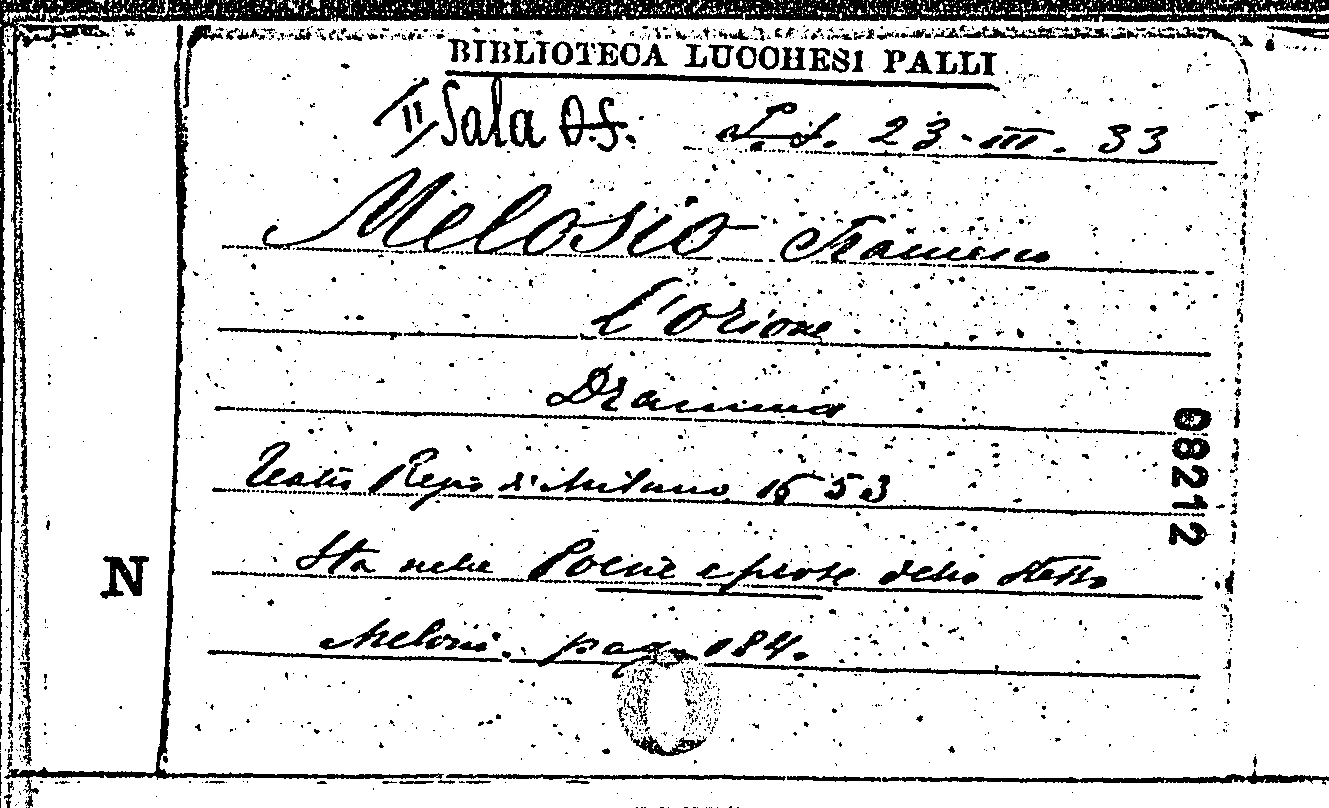 BIBLIOTECA LUCCHESI PALLI
II Sala O.S. L.S. 23-III. 33
Melosio Francesco
L'Orione
Dramma
Teatro Regio di Milano 1653
Sta nelle Poesie e prose dello stesso
Melosio. pag. 184.
08212
N